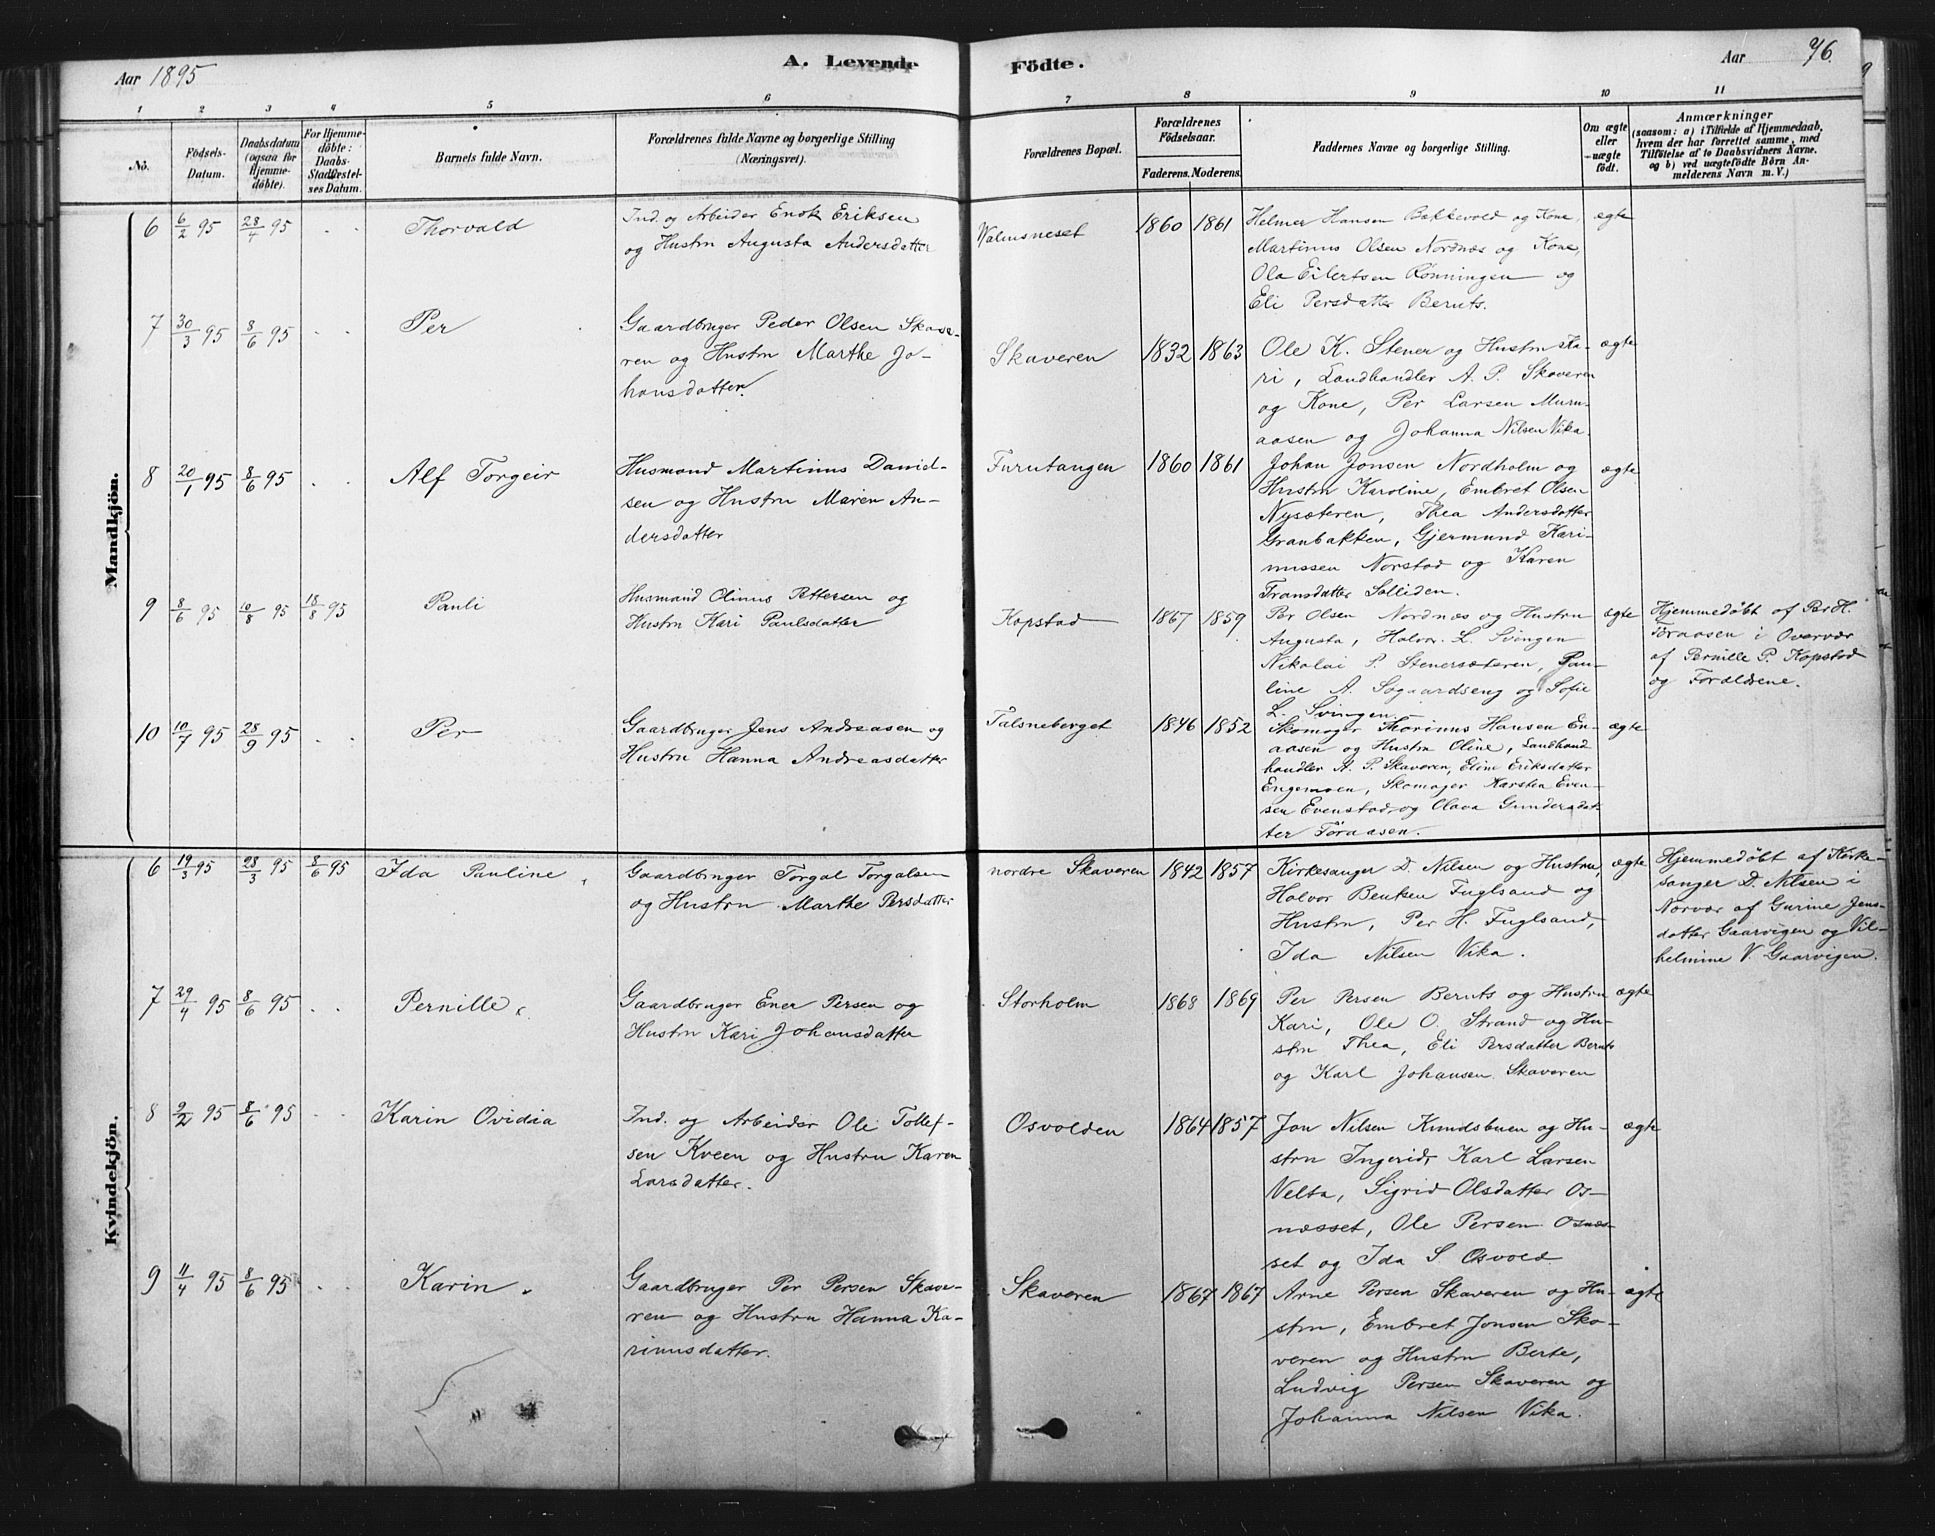 Aar 1895
A. Levende
Födte.
Aar
76.
1 2 3 4 5 6 7 8 9 10 11
No.
Födsels-
Datum.
Daabsdatum
(ogsaa for
Hjemme-
döbte).
For Hjemme-
döbte:
Daabs-
Stadfæstel-
ses Datum.
Barnets fulde Navn.
Forældrenes fulde Navne og borgerlige Stilling
(Næringsvei).
Forældrenes Bopæl.
Forældrenes
Födselsaar.
Faderens. Moderens.
Faddernes Navne og borgerlige Stilling.
Om ægte
eller
uægte
födt.
Anmærkninger
(saasom: a) i Tilfælde af Hjemmedaab,
hvem der har forrettet samme, med
Tilföielse af to Daabsvidners Navne,
og b) ved uægtefödte Börn An-
melderens Navn m. V.)
Mandkjön.
6 6/2 95 28/4 95 . . Thorvald
Ind. og Arbeider Enok Eriksen
og Hustru Augusta Andersdatter
Malmsneset 1860 1861
Helmer Hansen Bakkevold og Kone,
Martinus Olsen Nordnæs og Kone,
Ola Eilertsen Rønningen og
Eli Persdatter Beruts.
ægte
7 30/3 95 8/6 95 . . Per
Gaardbruger Peder Olsen Skave-
ren og Hustru Marthe Jo-
hansdatter.
Skaveren 1832 1863
Ole K. Stener og Hustru Ka-
ri, Landhandler A. P. Skaveren
og Kone, Per Larsen Muru-
aasen og Johanna Nilsen Vika.
ægte
8 20/1 95 8/6 95 . . Alf Torgeir
Husmand Martinus Daniel-
sen og Hustru Maren An-
dersdatter
Furutangen 1860 1861
Johan Jonsen Nordholm og
Hustru Karoline, Embret Olsen
Nysæteren, Thea Andersdatter
Granbakken, Gjermund Kari-
nussen Norstad og Karen
Fransdatter Solliden.
ægte
9 8/6 95 10/8 95 18/8 95 Pauli
Husmand Olinus Pettersen og
Hustru Kari Paulsdatter
Kopstad 1867 1859
Per Olsen Nordnæs og Hustru
Augusta, Halvor L. Svingen
Nikolai P. Stenersæteren, Pau-
line A. Søgaardseng og Sofie
L. Svingen.
ægte
Hjemmedøbt af Per H.
Tøraasen i Overvær
af Pernille P. Kopstad
og Forældrene.
10 10/7 95 28/9 95 . . Per
Gaardbruger Jens Andreasen og
Hustru Hanna Andreasdatter
Talsneberget 1846 1852
Skomager Thorinus Hansen En-
aasen og Hustru Oline, Landhand
handler A. P. Skaveren, Eline Eriksdatter
Engemoen, Skomager Karsten Even-
sen Evenstad og Olava Gundersdat-
ter Tøraasen.
ægte
Kvindekjön.
6 19/3 95 28/3 95 8/6 95 Ida Pauline
Gaardbruger Torgal Torgalsen
og Hustru Marthe Persdatter
nordre Skaveren 1842 1857
Kirkesanger D. Nilsen og Hustru,
Halvor Bentsen Fuglsand og
Hustru, Per H. Fuglsand,
Ida Nilsen Vika.
ægte
Hjemmedøbt af Kirke-
sanger D. Nilsen i
Nærvær af Gurine Jens-
datter Gaarvigen og Vil-
helmine V. Gaarvigen.
7 29/4 95 8/6 95 . . Pernille
Gaardbruger Ener Persen og
Hustru Kari Johansdatter
Storholm 1868 1869
Per Persen Beruts og Hustru
Kari, Ole O. Strand og Hu-
stru Thea, Eli Persdatter Beruts
og Karl Johansen Skaveren
ægte
8 9/2 95 8/6 95 . . Karin Ovidia
Ind. og Arbeider Ole Tollef-
sen Kveen og Hustru Karen
Larsdatter.
Osvolden 1864 1857
Jon Nilsen Kundsbuen og Hu-
stru Ingerid, Karl Larsen
Velta, Sigrid Olsdatter Os-
næsset, Ole Persen Osnæs-
set og Ida S Osvold.
ægte
9 11/4 95 8/6 95 . . Karin
Gaardbruger Per Persen Skave-
ren og Hustru Hanna Ka-
rinusdatter.
Skaveren 1867 1867
Arne Persen Skaveren og Hu-
stru, Embret Jonsen Ska-
veren og Hustru Berte,
Ludvig Persen Skaveren og
Johanna Nilsen Vika.
ægte